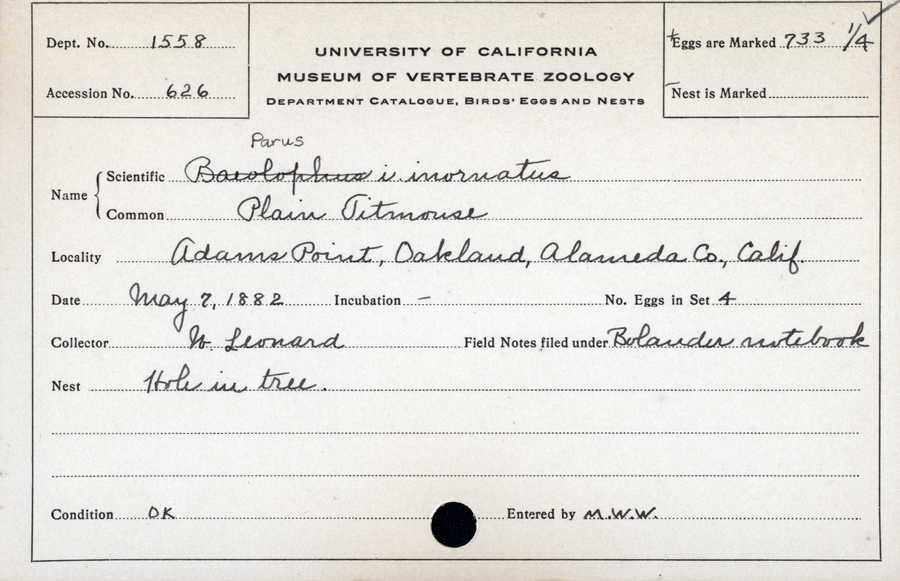 Dept. No. 1558
Accession No. 626
UNIVERSITY OF CALIFORNIA
MUSEUM OF VERTEBRATE ZOOLOGY
DEPARTMENT CATALOGUE, BIRDS' EGGS AND NESTS
Eggs are Marked 733 1/4
Nest is Marked
Parus
Name Scientific Baeolophus i. inornatus
Common Plain Titmouse
Locality Adams Point, Oakland, Alameda Co., Calif.
Date May 7, 1882 Incubation – No. Eggs in Set 4
Collector W. Leonard Field Notes filed under Bolander notebook
Nest Hole in tree.
Condition OK Entered by M.W.W.